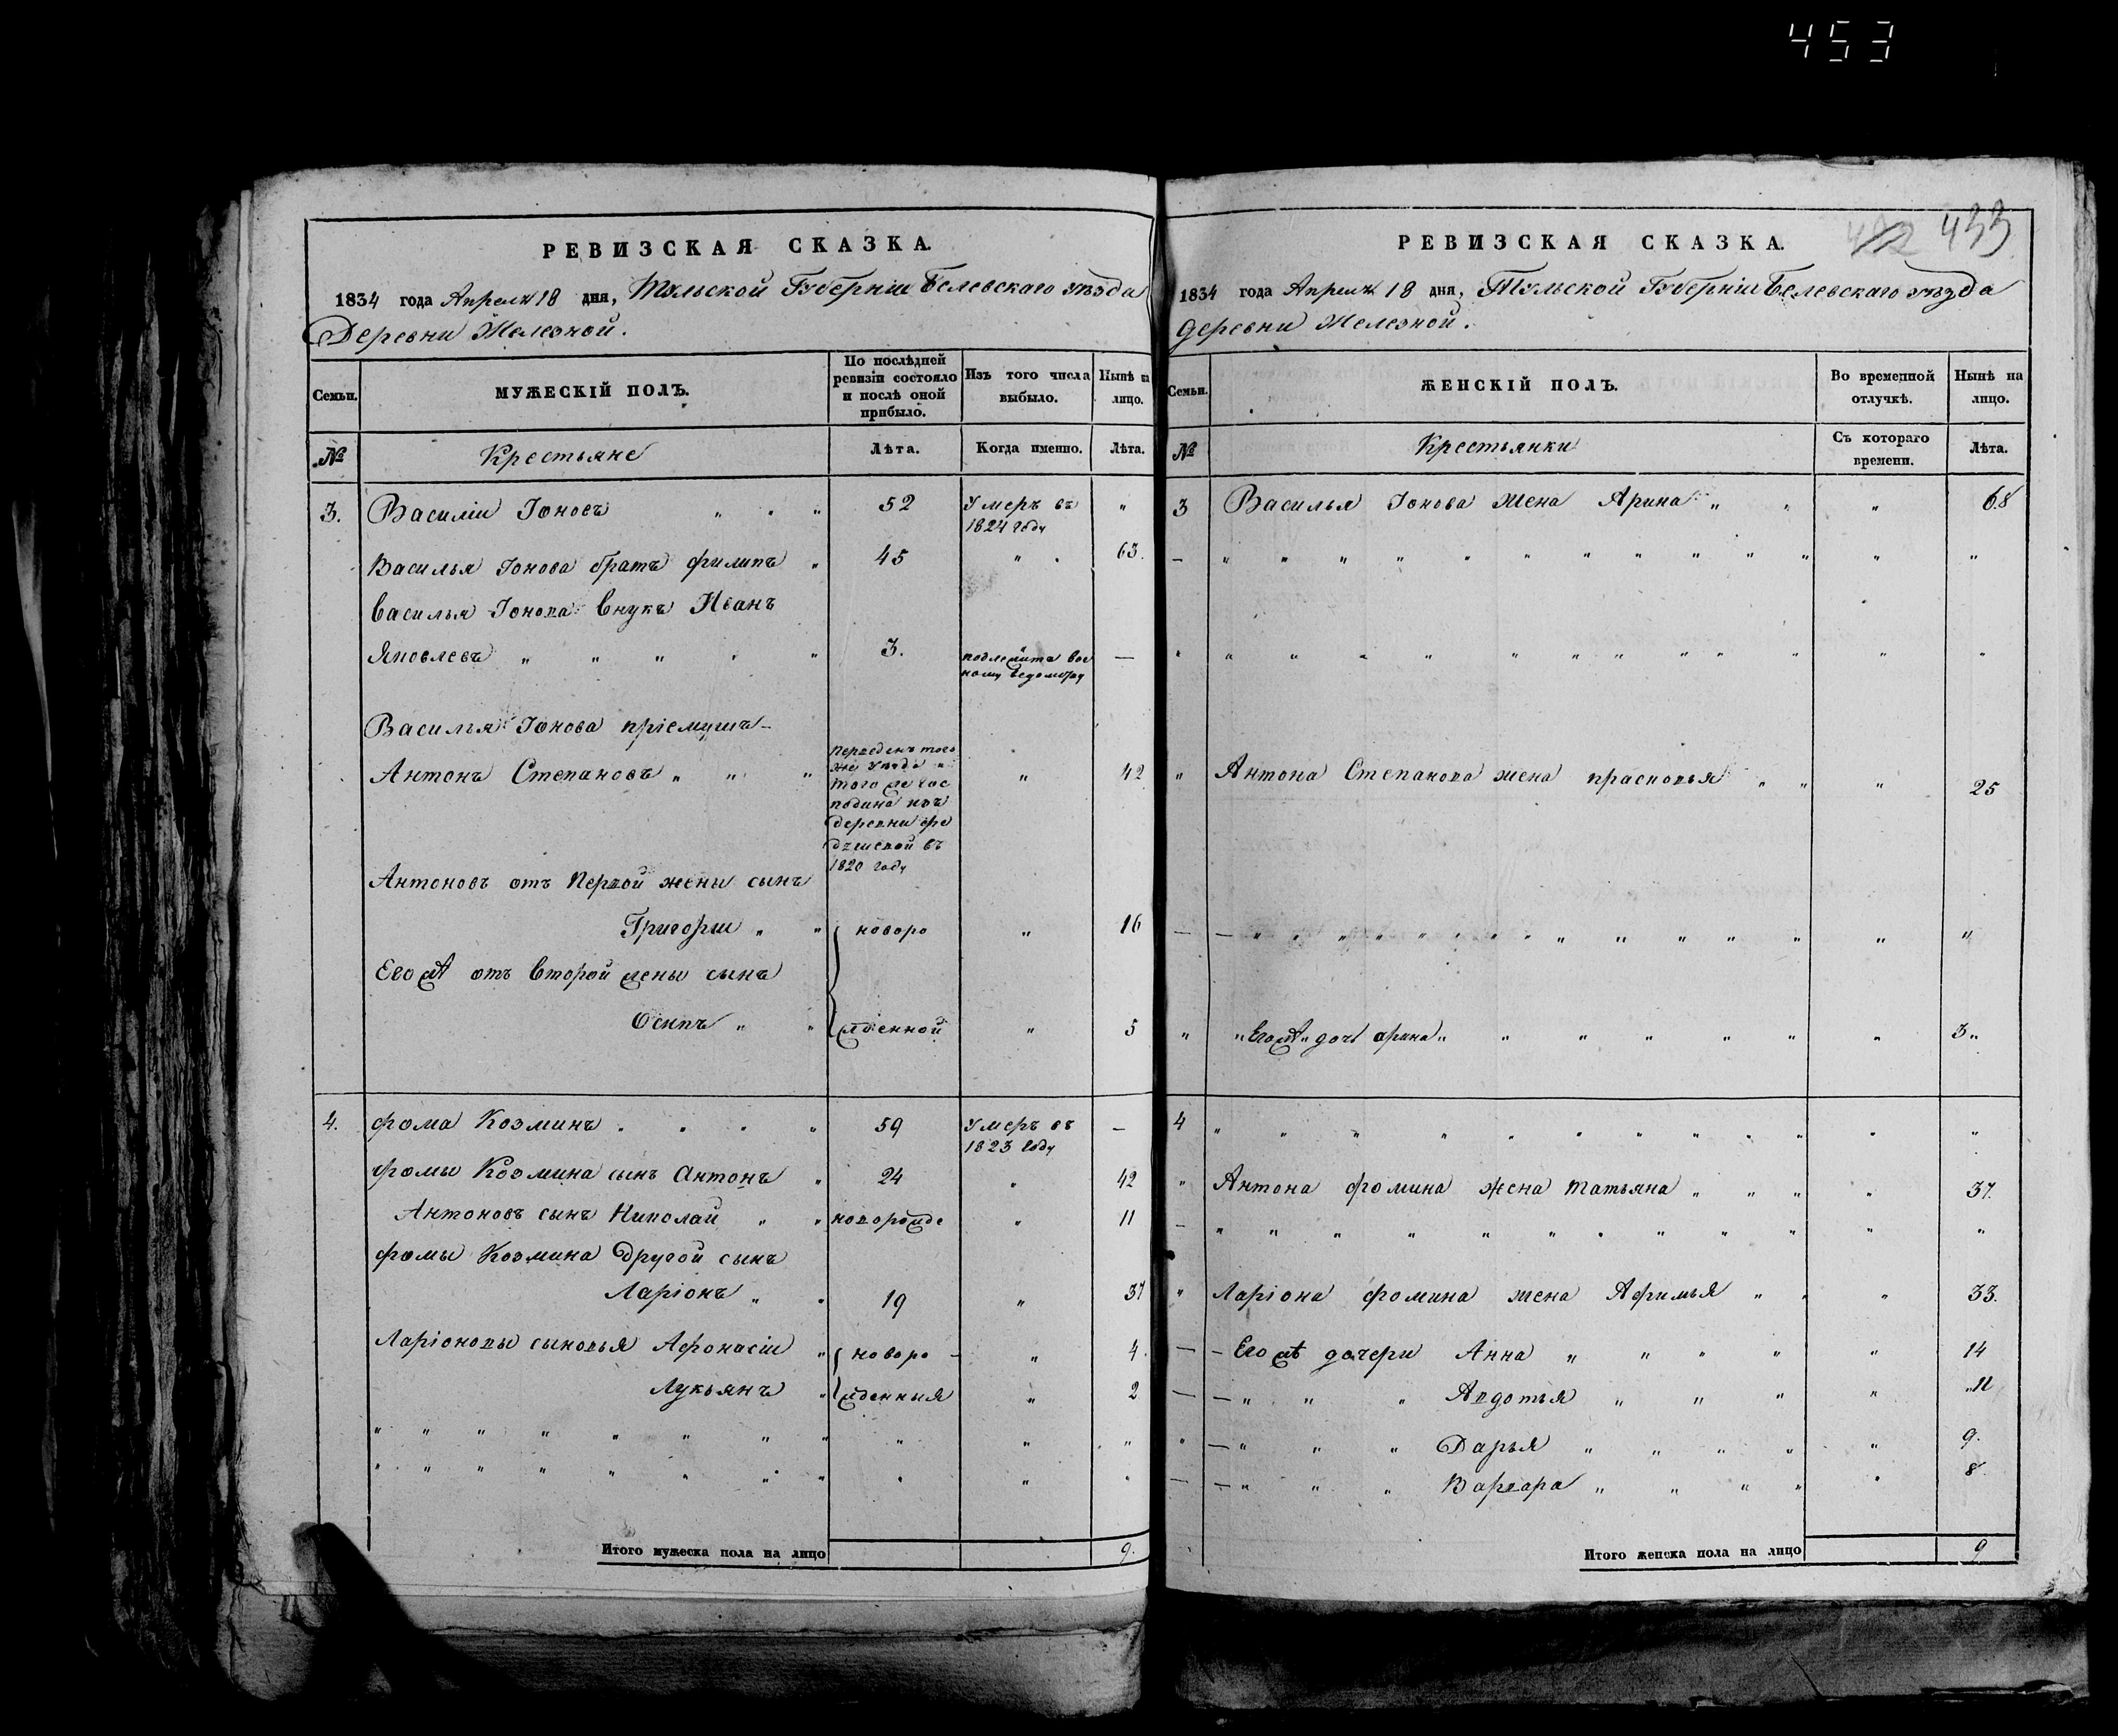 453
РЕВИЗСКАЯ СКАЗКА.
1834 года Апреля 18 дня, Тульской Губерніи Белевскаго уѣзда
Деревни Железной.
Семьи.
МУЖЕСКІЙ ПОЛЪ.
По послѣдней ревизіи состояло и послѣ оной прибыло.
Изъ того числа выбыло.
Нынѣ на лицо.
№
Крестьяне
Лѣта.
Когда именно.
Лѣта.
3. Василіи Іоновъ " " " 52 Умеръ въ 1824 году "
Василья Іонова братъ филипъ " 45 " 63.
Василья Іонова Внукъ Иванъ
Яковлевъ " " " " " 3. —
Василья Іонова пріемышъ
Антонъ Степановъ " " " " 42
того же гос
подина изъ
деревни
въ
1820 году
Антоновъ отъ Первой жены сынъ
Григории " " новоро " 16
Егожъ отъ Второй жены сынъ
Осипъ " " жденной " 5
4. фома Козминъ " " " " 59 Умеръ въ 1823 году —
фомы Козмина сынъ Антонъ " 24 " 42
Антоновъ сынъ Николай " " новорожде " 11
фомы Козмина Другой сынъ
Ларіонъ " " 19 " 37
Ларіоновы сыновья Афонасіи " новоро — " 4.
Лукьянъ " жденныя " 2
" " " " " " " " " " "
" " " " " " " " " " "
Итого мужеска пола на лицо 9.
433
РЕВИЗСКАЯ СКАЗКА.
1834 года Апреля 18 дня, Тульской Губерніи Белевскаго уѣзда
деревни Железной.
Семьи.
ЖЕНСКІЙ ПОЛЪ.
Во временной отлучкѣ.
Нынѣ на лицо.
№
Крестьянки
Съ котораго времени.
Лѣта.
3 Василья Іонова жена Арина " " " 68
— " " " " " " " " " " " " "
" " " " " " " " " " " " "
" Антона Степанова жена прасковья " " " 25
— — " " " " " " " " " " " " " "
" " Егожъ " дочь арина " " " " " " " 3 "
4 " " " " " " " " " " " "
" Антона фомина жена татьяна " " " " 37.
— " " " " " " " " " " " "
" Ларіона фомина жена Афимья " " " 33.
— — Егожъ дочери Анна " " " " " 14
— — " " " Авдотья " " " " "11
" — " " " Дарья " " " " " 9.
— — " " " Варвара " " " " " 8
Итого женска пола на лицо 9